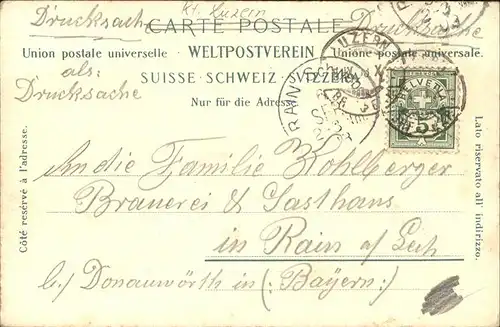 Kt. Luzern
Drucksache Drucksache
CARTE POSTALE
Union postale universelle · WELTPOSTVEREIN · Unione postale universale.
als: SUISSE · SCHWEIZ · SVIZZERA
Drucksache
Nur für die Adresse
LUZERN
RAIN
HELVETIA
5
Côté resérvé à l'adresse.
Lato riservato all' indirizzo.
An die Familie Kohlberger
Brauerei & Gasthaus
in Rain a/ Lech
b/ Donauwörth in (: Bayern :)